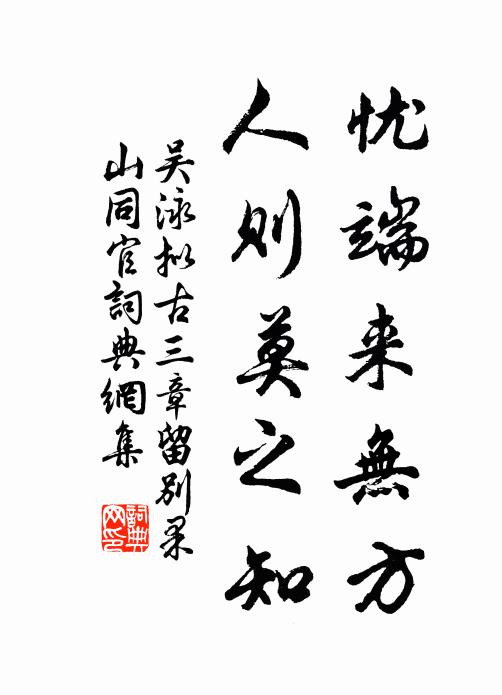 忧端来無方
人则莫之知
吴泳拟古三章留别果
山同官詞典網集
詞典网印